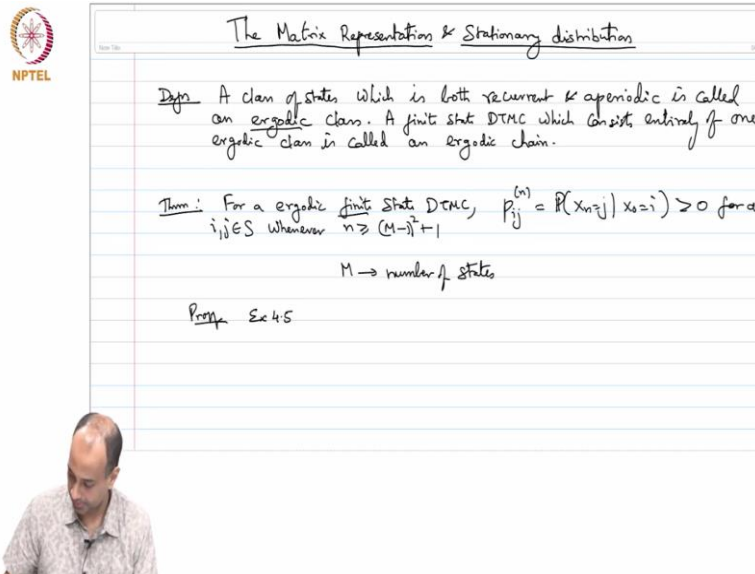 The Matrix Representation & Stationary distribution
Note Title
NPTEL
Defn A class of states which is both recurrent & aperiodic is called
an ergodic class. A finit stat DTMC which consists entirely of one
ergodic class is called an ergodic chain.
Thm: For a ergodic finit stat DTMC, p_{ij}^{(n)} = P(X_n=j | X_0=i) > 0 for a
i,j ∈ S whenever n ≥ (M-1)^2+1
M → number of states
Proof Ex 4.5